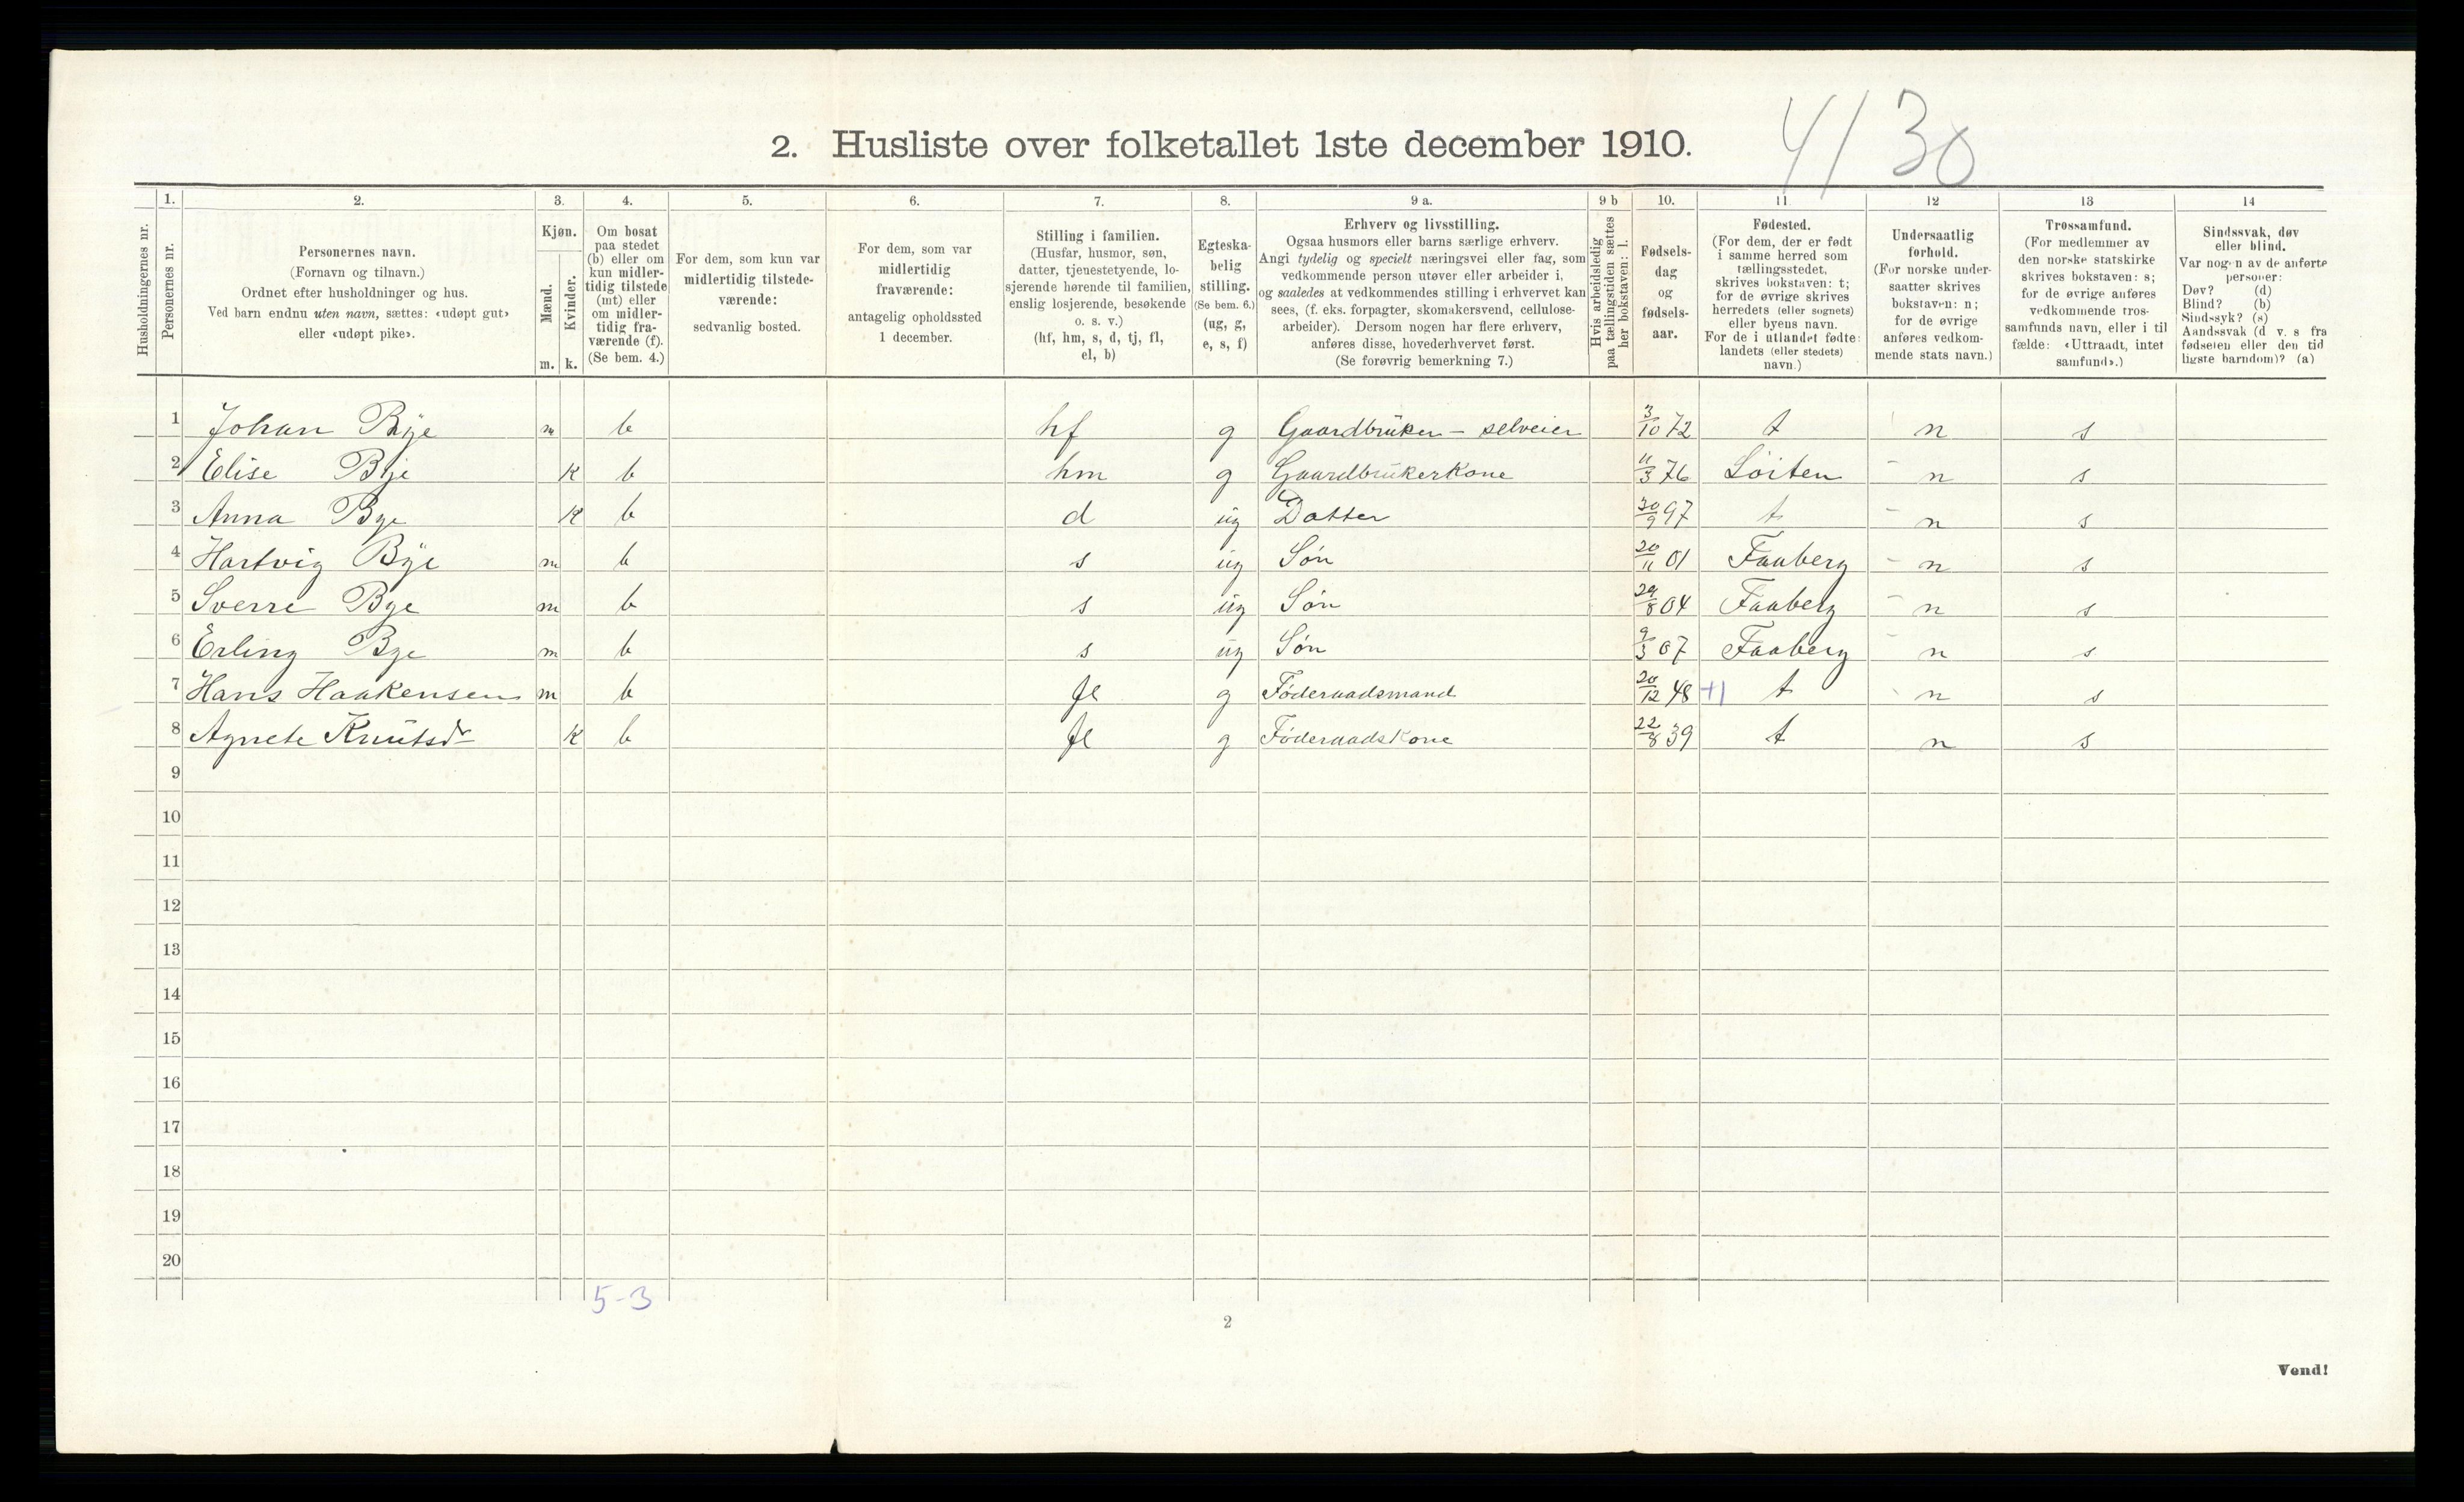 4/30
2. Husliste over folketallet 1ste december 1910.
Husholdningernes nr.
1.
Personernes nr.
2.
Personernes navn.
(Fornavn og tilnavn.)
Ordnet efter husholdninger og hus.
Ved barn endnu uten navn, sættes: «udøpt gut»
eller «udøpt pike».
3.
Kjøn.
Mænd.
m.
Kvinder.
k.
4.
Om bosat
paa stedet
(b) eller om
kun midler-
tidig tilstede
(mt) eller
om midler-
tidig fra-
værende (f).
(Se bem. 4.)
5.
For dem, som kun var
midlertidig tilstede-
værende:
sedvanlig bosted.
6.
For dem, som var
midlertidig
fraværende:
antagelig opholdssted
1 december.
7.
Stilling i familien.
(Husfar, husmor, søn,
datter, tjenestetyende, lo-
sjerende hørende til familien,
enslig losjerende, besøkende
o. s. v.)
(hf, hm, s, d, tj, fl,
el, b)
8.
Egteska-
belig
stilling.
(Se bem. 6.)
(ug, g,
e, s, f)
9 a.
Erhverv og livsstilling.
Ogsaa husmors eller barns særlige erhverv.
Angi tydelig og specielt næringsvei eller fag, som
vedkommende person utøver eller arbeider i,
og saaledes at vedkommendes stilling i erhvervet kan
sees, (f. eks. forpagter, skomakersvend, cellulose-
arbeider). Dersom nogen har flere erhverv,
anføres disse, hovederhvervet først.
(Se forøvrig bemerkning 7.)
9 b
Hvis arbeidsledig
paa tællingstiden sættes
her bokstaven: l.
10.
Fødsels-
dag
og
fødsels-
aar.
11
Fødested.
(For dem, der er født
i samme herred som
tællingsstedet,
skrives bokstaven: t;
for de øvrige skrives
herredets (eller sognets)
eller byens navn.
For de i utlandet fødte:
landets (eller stedets)
navn.)
12
Undersaatlig
forhold.
(For norske under-
saatter skrives
bokstaven: n;
for de øvrige
anføres vedkom-
mende stats navn.)
13
Trossamfund.
(For medlemmer av
den norske statskirke
skrives bokstaven: s;
for de øvrige anføres
vedkommende tros-
samfunds navn, eller i til
fælde: «Uttraadt, intet
samfund».)
14
Sindssvak, døv
eller blind.
Var nogen av de anførte
personer:
Døv? (d)
Blind? (b)
Sindssyk? (s)
Aandssvak (d v. s fra
fødselen eller den tid
ligste barndom)? (a)
1 Johan Bye m b hf g Gaardbruker - selveier 3/10 72 t n s
2 Elise Bye K b hm g Gaardbrukerkone 11/3 76 Löiten n s
3 Anna Bye K b d ug Datter 30/9 97 t n s
4 Hartvig Bye m b s ug Søn 20/11 01 Faaberg n s
5 Sverre Bye m b s ug Søn 29/8 04 Faaberg n s
6 Erling Bye m b s ug Søn 9/3 07 Faaberg n s
7 Hans Haakensen m b fl g Föderaadsmand 20/12 48 +1 t n s
8 Agnete Knutsdr K b fl g Föderaadskone 22/8 39 t n s
9
10
11
12
13
14
15
16
17
18
19
20
5-3
2
Vend!